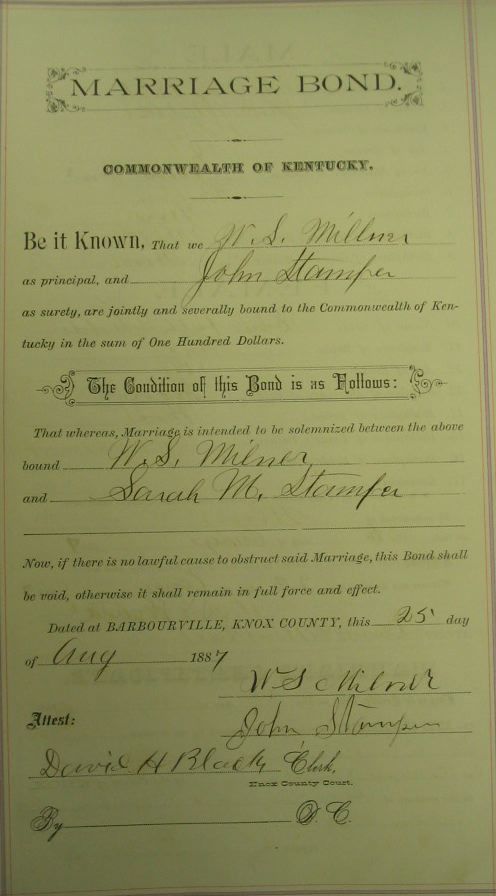 MARRIAGE BOND.
COMMONWEALTH OF KENTUCKY.
Be it Known, That we W. S. Millner
as principal, and John Stamper
as surety, are jointly and severally bound to the Commonwealth of Ken-
tucky in the sum of One Hundred Dollars.
The Condition of this Bond is as Follows:
That whereas, Marriage is intended to be solemnized between the above
bound W. S. Milner
and Sarah M. Stamper
Now, if there is no lawful cause to obstruct said Marriage, this Bond shall
be void, otherwise it shall remain in full force and effect.
Dated at BARBOURVILLE, KNOX COUNTY, this 25 day
of Aug 1887
W S Milner
Attest: John Stamper
David H Black Clerk,
Knox County Court.
By D. C.